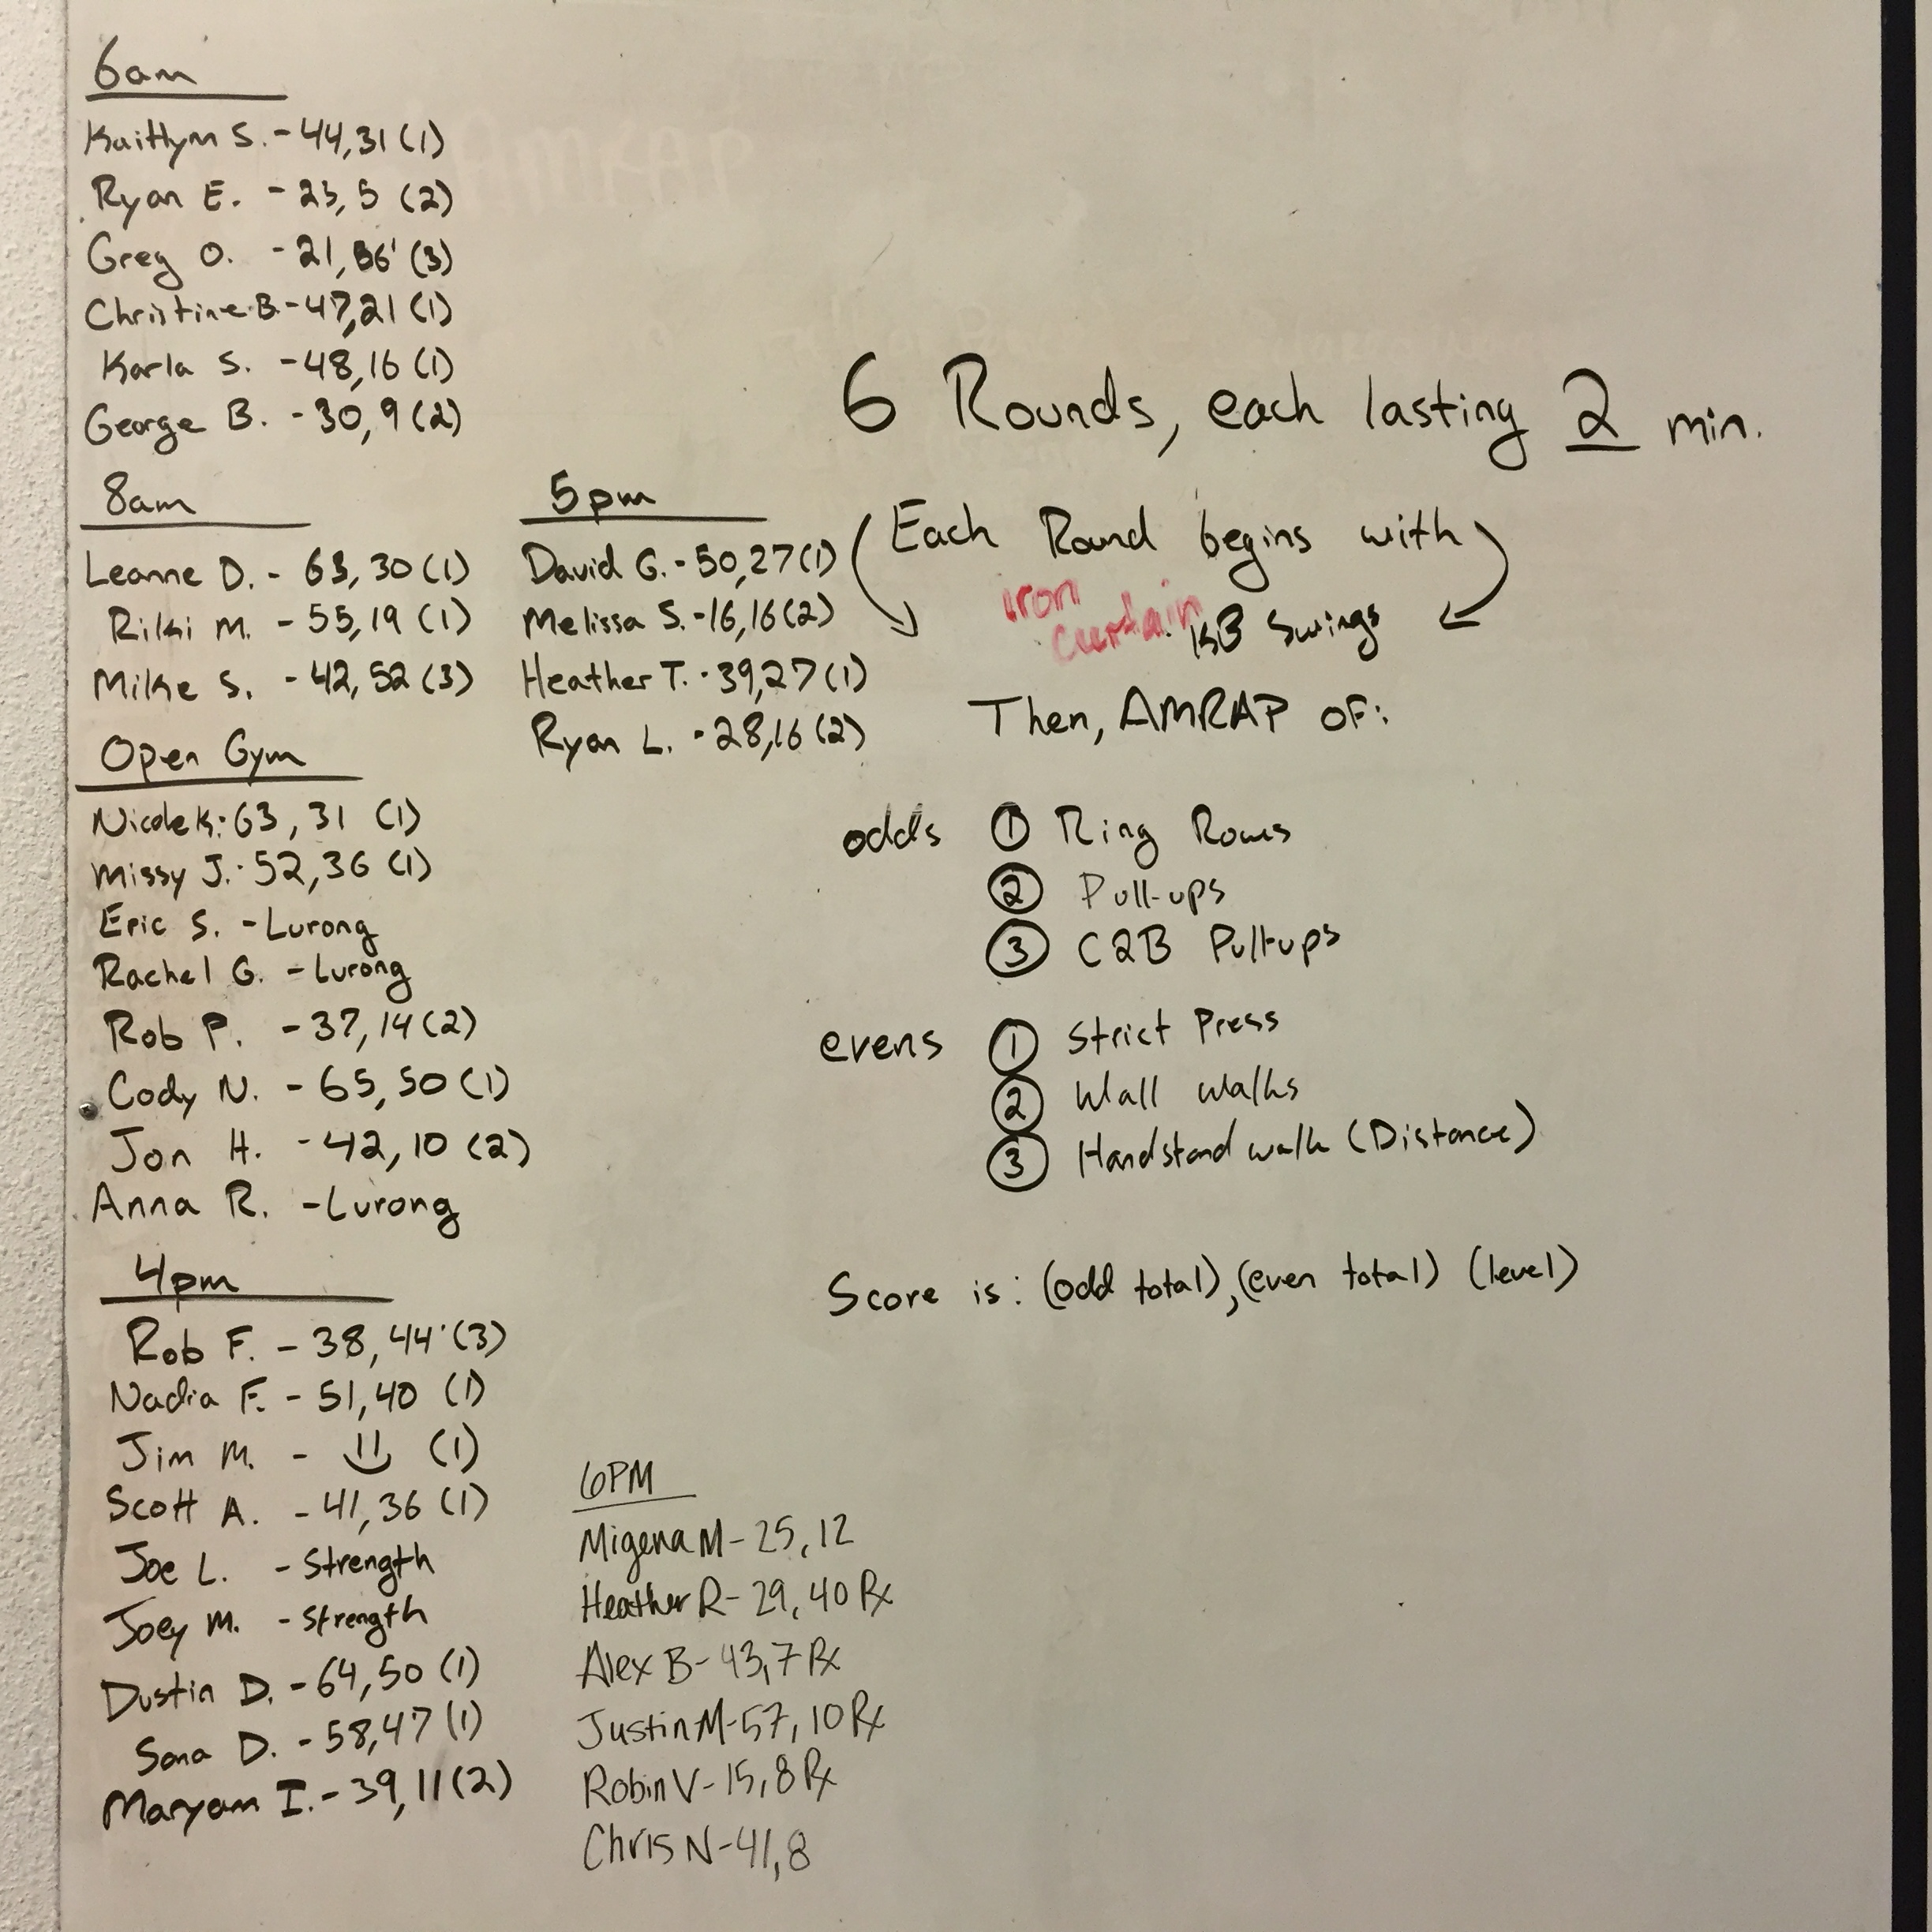 6am
Kaitlyn S. - 44,31 (1)
Ryan E. - 23, 5 (2)
Greg O. - 21, 36' (3)
Christine B. - 47,21 (1)
Karla S. - 48,16 (1)
George B. - 30,9 (2)
8am
Leanne D. - 63, 30 (1)
Riki M. - 55,19 (1)
Mike S. - 42, 52 (3)
Open Gym
Nicole K: 63, 31 (1)
Missy J. - 52,36 (1)
Eric S. - Lurong
Rachel G. - Lurong
Rob P. - 37,14 (2)
Cody N. - 65,50 (1)
Jon H. - 42,10 (2)
Anna R. - Lurong
4pm
Rob F. - 38,44' (3)
Nadia F. - 51,40 (1)
Jim M. - (1)
Scott A. - 41,36 (1)
Joe L. - Strength
Joey M. - Strength
Dustin D. - 64,50 (1)
Sana D. - 58,47 (1)
Maryam I. - 39,11 (2)
5pm
David G. - 50,27 (1)
Melissa S. - 16,16 (2)
Heather T. - 39,27 (1)
Ryan L. - 28,16 (2)
6PM
Migena M - 25, 12
Heather R - 29, 40 Rx
Alex B - 43,7 Rx
Justin M - 57, 10 Rx
Robin V - 15,8 Rx
Chris N - 41,8
6 Rounds, each lasting 2 min.
(Each Round begins with)
iron
curtain KB Swings
Then, AMRAP of:
odds ① Ring Rows
② Pull-ups
③ C2B Pull-ups
evens ① Strict Press
② Wall Walks
③ Handstand walk (Distance)
Score is: (odd total), (even total) (level)